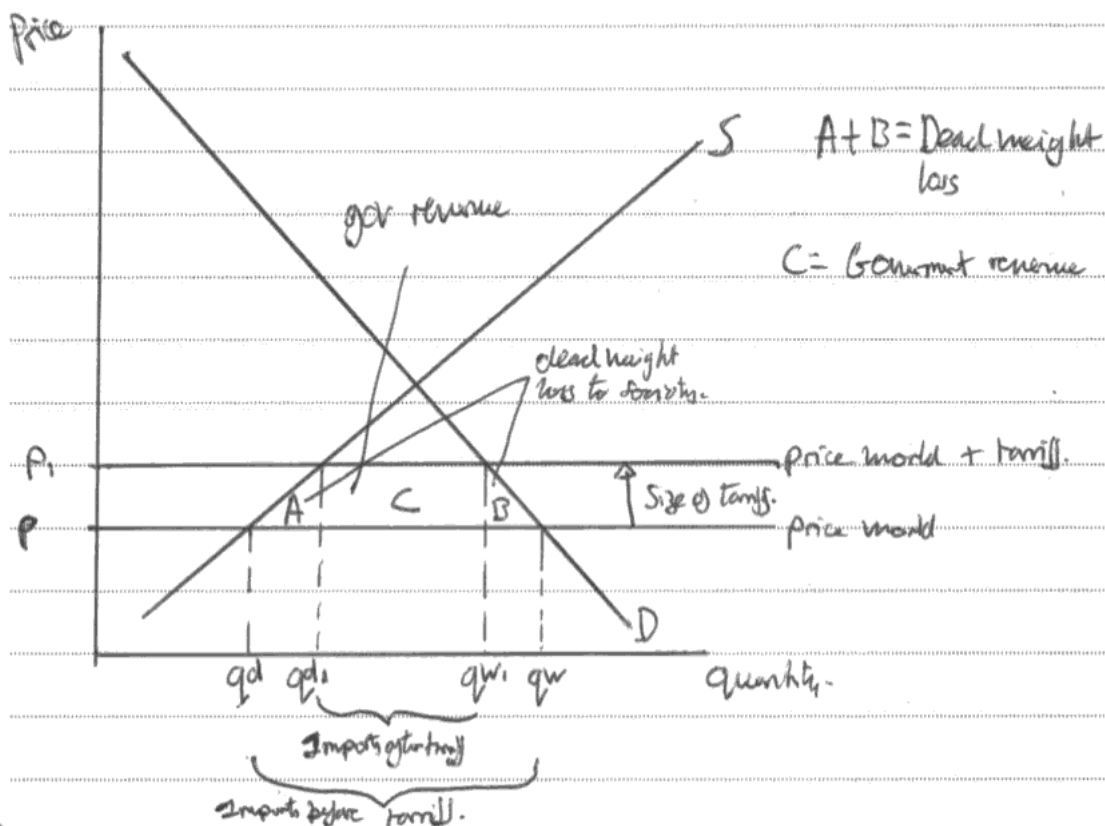 Price
S
A + B = Dead weight
loss
gov revenue
C = Government revenue
dead weight
loss to society.
P₁
price world + tariff.
A
C
B
Size of tariff.
P
price world
D
qd
qd₁
qw₁
qw
quantity.
Imports after tariff
Imports before tariff.